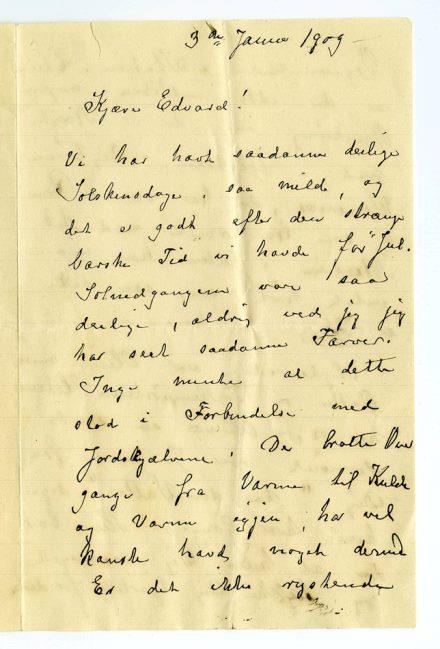 3die Januar 1909
Kjære Edvard!
Vi har havt saadanne deilige
Solskinsdage, saa milde, og
det er godt efter den strænge
barske Tid vi havde før Jul.
Solnedgangene vare saa
deilige, aldrig ved jeg jeg
har seet saadanne Farver.
Inge mente at dette
stod i Forbindelse med
Jordskjælvene! De bratte Over
gange fra Varme til Kulde
og Varme igjen, har vel
kanske havt noget dermed
Er det ikke rystende